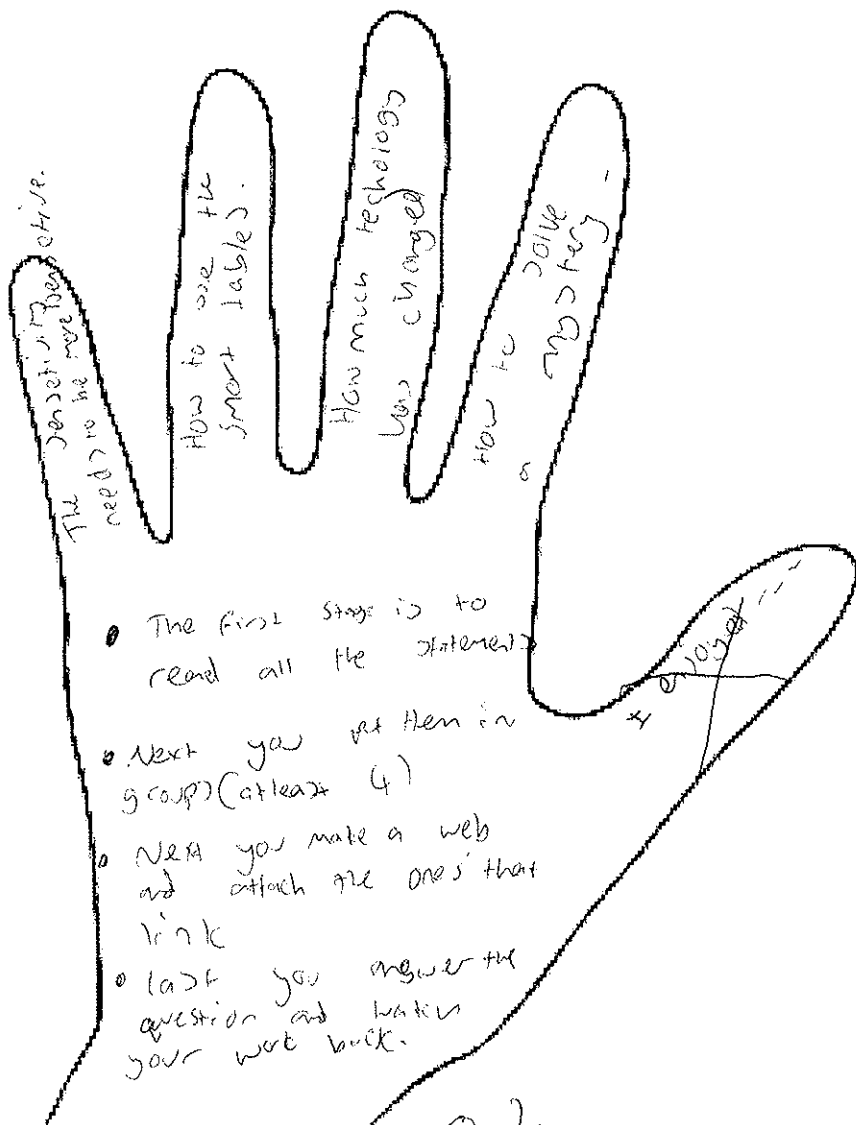 The sensetivity
needs to be more sensetive.
How to use the
smart tables.
How much techology
has changed
How to solve
a mystery
I enjoyed
The first stage is to
read all the statements
Next you put them in
groups (atleast 4)
Next you make a web
and attach the ones that
link
last you answer the
question and watch
your work back.